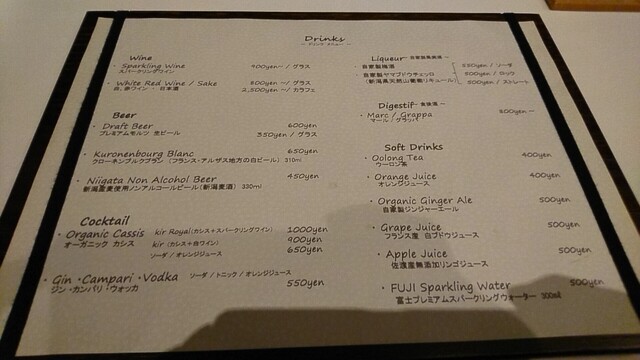 Drinks
Wine
・Sparkling Wine 400yen~ / グラス
スパークリングワイン
・White Red Wine / Sake 800yen~ / グラス
白,赤ワイン・日本酒 2,500yen~ / カラフェ
Beer
・Draft Beer 600yen
プレミアムモルツ 生ビール 350yen / グラス
・Kuronenbourg Blanc 650yen
クローネンブルクブラン (フランス・アルザス地方の白ビール) 310ml
・Niigata Non Alcohol Beer 450yen
新潟産麦使用ノンアルコールビール(新潟麦酒) 330ml
Cocktail
・Organic Cassis kir Royal(カシス+スパークリングワイン) 1000yen
オーガニック カシス kir (カシス+白ワイン) 900yen
ソーダ / オレンジジュース 650yen
・Gin・Campari・Vodka ソーダ / トニック / オレンジジュース
ジン・カンパリ・ウォッカ 550yen
Liqueur -自家製果実酒-
・自家製梅酒 550yen / ソーダ
・自家製ヤマブドウチェッロ 500yen / ロック
500yen / ストレート
Digestif -食後酒-
・Marc / Grappa 800yen~
マール / グラッパ
Soft Drinks
・Oolong Tea 400yen
ウーロン茶
・Orange Juice 400yen
オレンジジュース
・Organic Ginger Ale 500yen
自家製ジンジャーエール
・Grape Juice 500yen
フランス産 白ブドウジュース
・Apple Juice 500yen
佐渡産無添加リンゴジュース
・FUJI Sparkling Water 500yen
富士プレミアムスパークリングウォーター 300ml